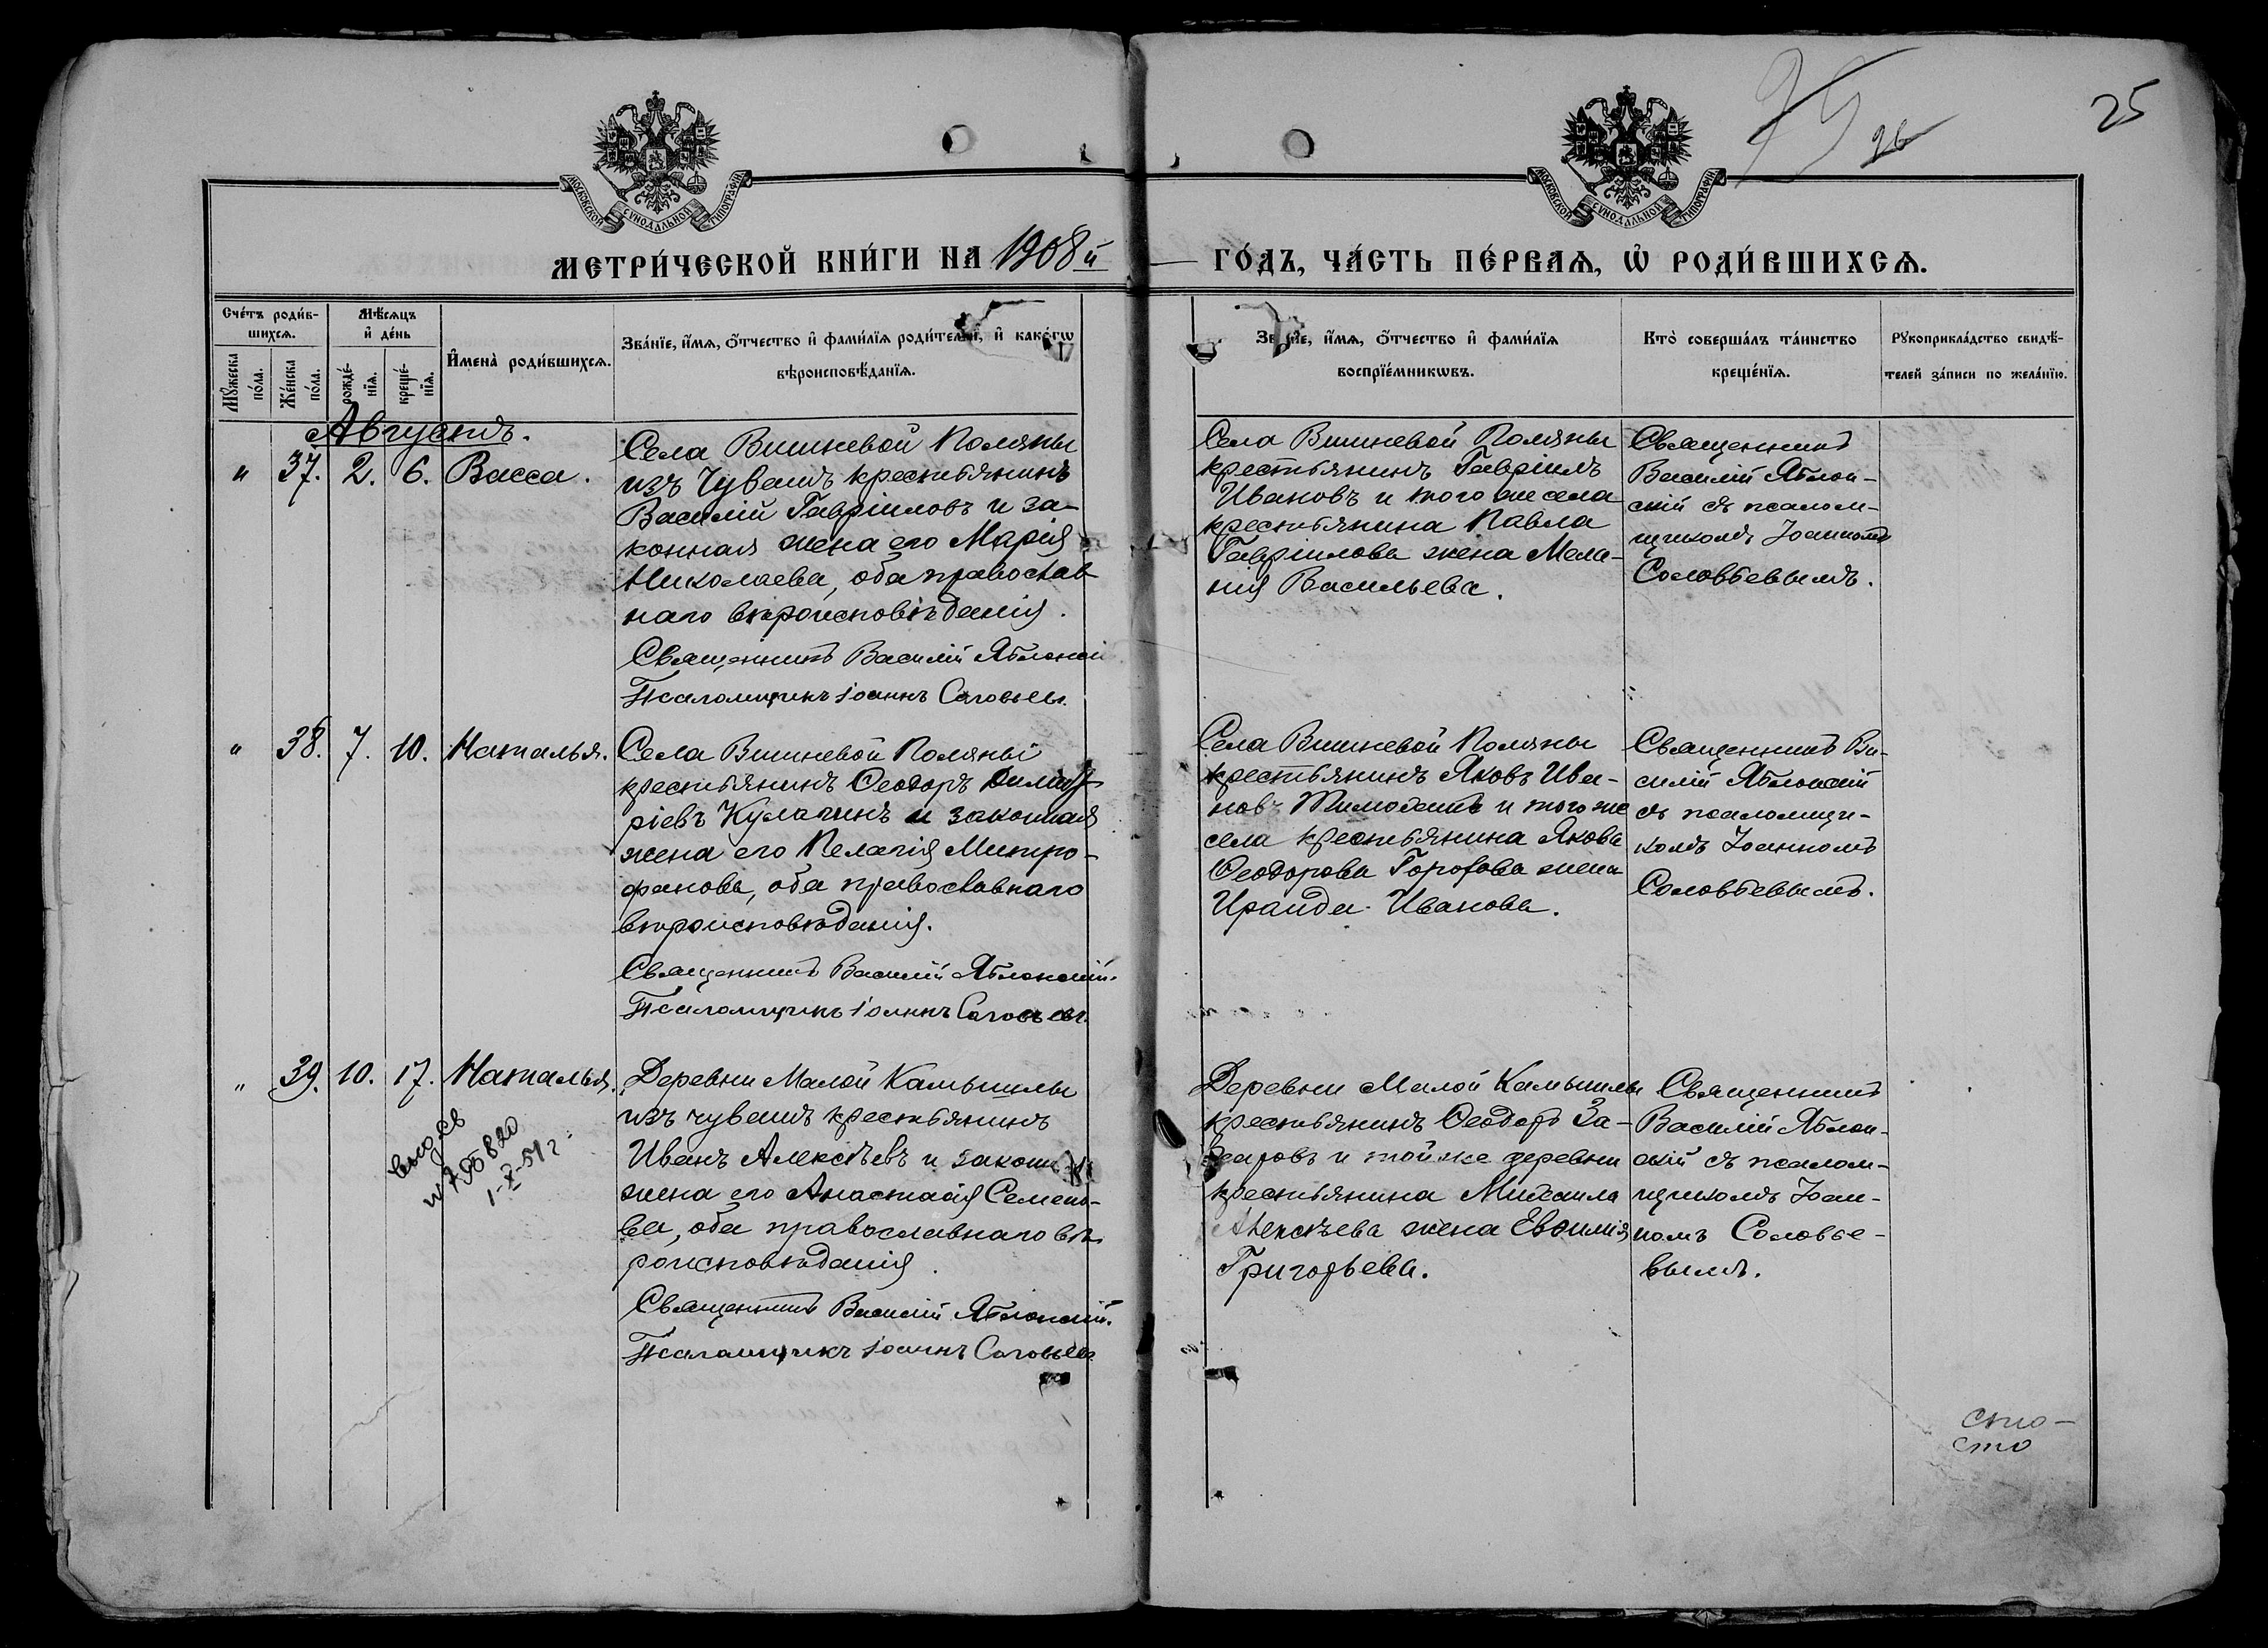 25
26
МОСКОВСКОЙ СѴНОДАЛЬНОЙ ТИПОГРАФІИ
МОСКОВСКОЙ СѴНОДАЛЬНОЙ ТИПОГРАФІИ
МЕТРИ́ЧЕСКОЙ КНИ́ГИ НА 1908й ГО́ДЪ, ЧА́СТЬ ПЕ́РВАЯ, Ѡ҆ РОДИ́ВШИХСЯ.
Сче́тъ роди́в-
шихся.
Мѣ́сяцъ
и҆ де́нь
Мꙋ́жеска
по́ла.
Же́нска
по́ла.
рожде́-
нїя.
креще́-
нїя.
И҆мена̀ роди́вшихся.
Зва́нїе, и҆́мя, ѻ҆́тчество и҆ фами́лїя роди́телей, и҆ како́гѡ
вѣроисповѣ́данїя.
Зва́нїе, и҆́мя, ѻ҆́тчество и҆ фами́лїя
воспрїе́мникѡвъ.
Кто̀ соверша́лъ та́инство
креще́нїя.
Рꙋкоприкла́дство свидѣ́-
телей за́писи по жела́нїю.
Августъ.
" 37. 2. 6. Васса.
Села Вишневой Поляны
изъ Чувашъ крестьянинъ
Василій Гавріиловъ и за-
конная жена его Марія
Николаева, оба православ-
наго вѣроисповѣданія.
Священникъ Василій Яблонскій
Псаломщикъ Іоаннъ Соловьевъ.
Села Вишневой Поляны
крестьянинъ Гавріилъ
Ивановъ и того же села
крестьянина Павла
Гавріилова жена Мела-
нія Васильева.
Священникъ
Василій Яблон-
скій съ псалом-
щикомъ Іоанномъ
Соловьевымъ.
" 38. 7. 10. Наталья.
Села Вишневой Поляны
крестьянинъ Ѳеодоръ Димит-
ріевъ Кулагинъ и законная
жена его Пелагія Митро-
фанова, оба православнаго
вѣроисповѣданія.
Священникъ Василій Яблонскій.
Псаломщикъ Іоаннъ Соловьевъ.
Села Вишневой Поляны
крестьянинъ Яковъ Ива-
новъ и того же
села крестьянина Якова
Ѳеодорова жена
Ираида Иванова.
Священникъ Ва-
силій Яблонскій
съ псаломщи-
комъ Іоанномъ
Соловьевымъ.
" 39. 10. 17. Наталья.
Деревни Малой Камышлы
изъ чувашъ крестьянинъ
Иванъ Алексѣевъ и законная
жена его Анастасія Семено-
ва, оба православнаго вѣ-
роисповѣданія.
Священникъ Василій Яблонскій.
Псаломщикъ Іоаннъ Соловьевъ.
Деревни Малой Камышлы
крестьянинъ Ѳеодоръ За-
харовъ и той же деревни
крестьянина Михаила
Алексѣева жена Евѳимія
Григорьева.
Священникъ
Василій Яблон-
скій съ псалом-
щикомъ Іоан-
номъ Соловье-
вымъ.
1-X-51 г.
сто-
сто